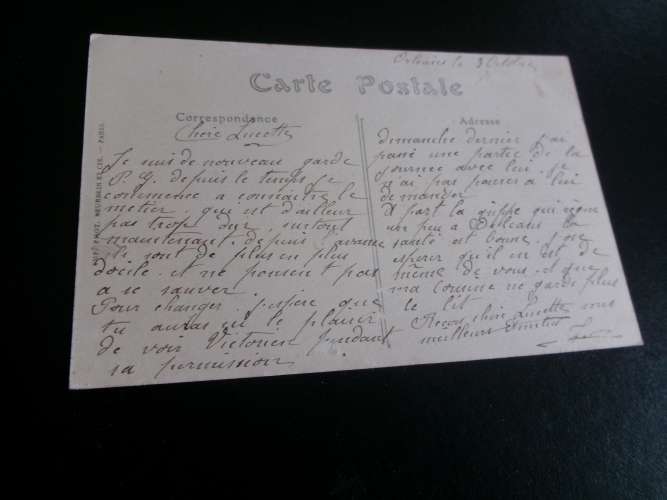 Orléans le 3 Octobre
Carte Postale
Correspondance
Adresse
NEURDEIN ET CIE. — PARIS.
Chère Lucette
Je suis de nouveau garde
P.G. depuis le temps je
commence a connaitre le
metier, qui est d'ailleur
pas trop dur, surtout
maintenant, depuis
ils sont de plus en plus
docile. et ne pensent pas
a se sauver.
Pour changer j'espere que
tu auras eu le plaisir
de voir Victorien pendant
sa permission
dimanche dernier j'ai
passé une partie de la
journée avec lui, je
n'ai pas penser a lui
demander.
A part la grippe qui règne
un peu a Orléans la
santé est bonne, j'ose
esperer qu'il en est de
même de vous. et que
ma cousine ne garde plus
le lit
Recois chère Lucette mes
meilleurs amitiés